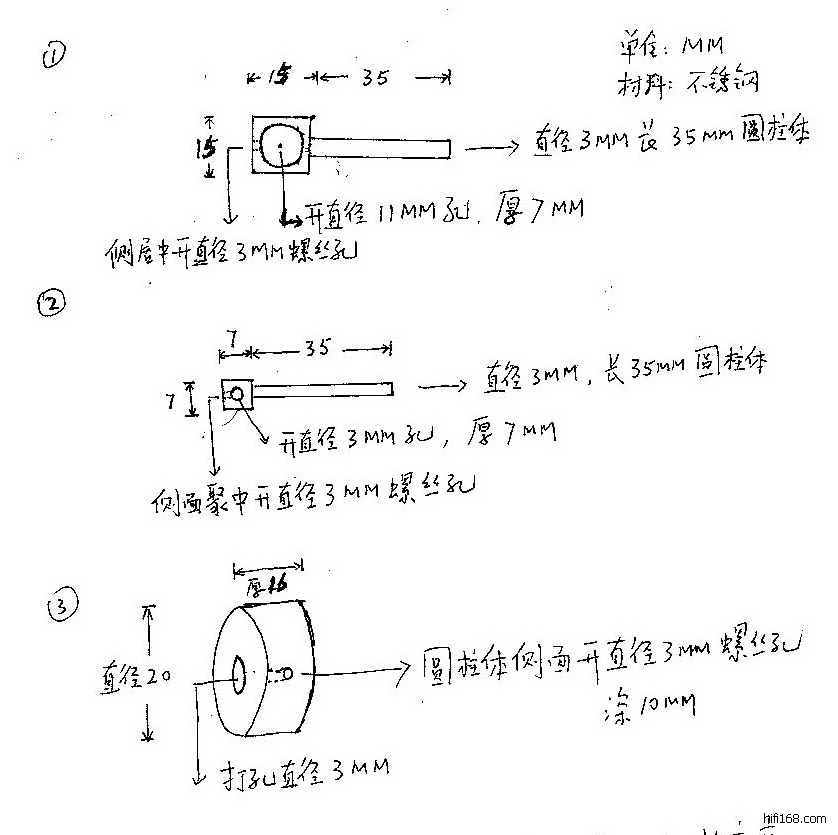 ①
单位: MM
材料: 不锈钢
15 35
15
直径3MM长35MM圆柱体
开直径11MM孔, 厚7MM
侧居中开直径3MM螺丝孔
②
7 35
7
直径3MM, 长35MM圆柱体
开直径3MM孔, 厚7MM
侧面聚中开直径3MM螺丝孔
③
厚16
直径20
圆柱体侧面开直径3MM螺丝孔
深10MM
打孔直径3MM
hifi168.com